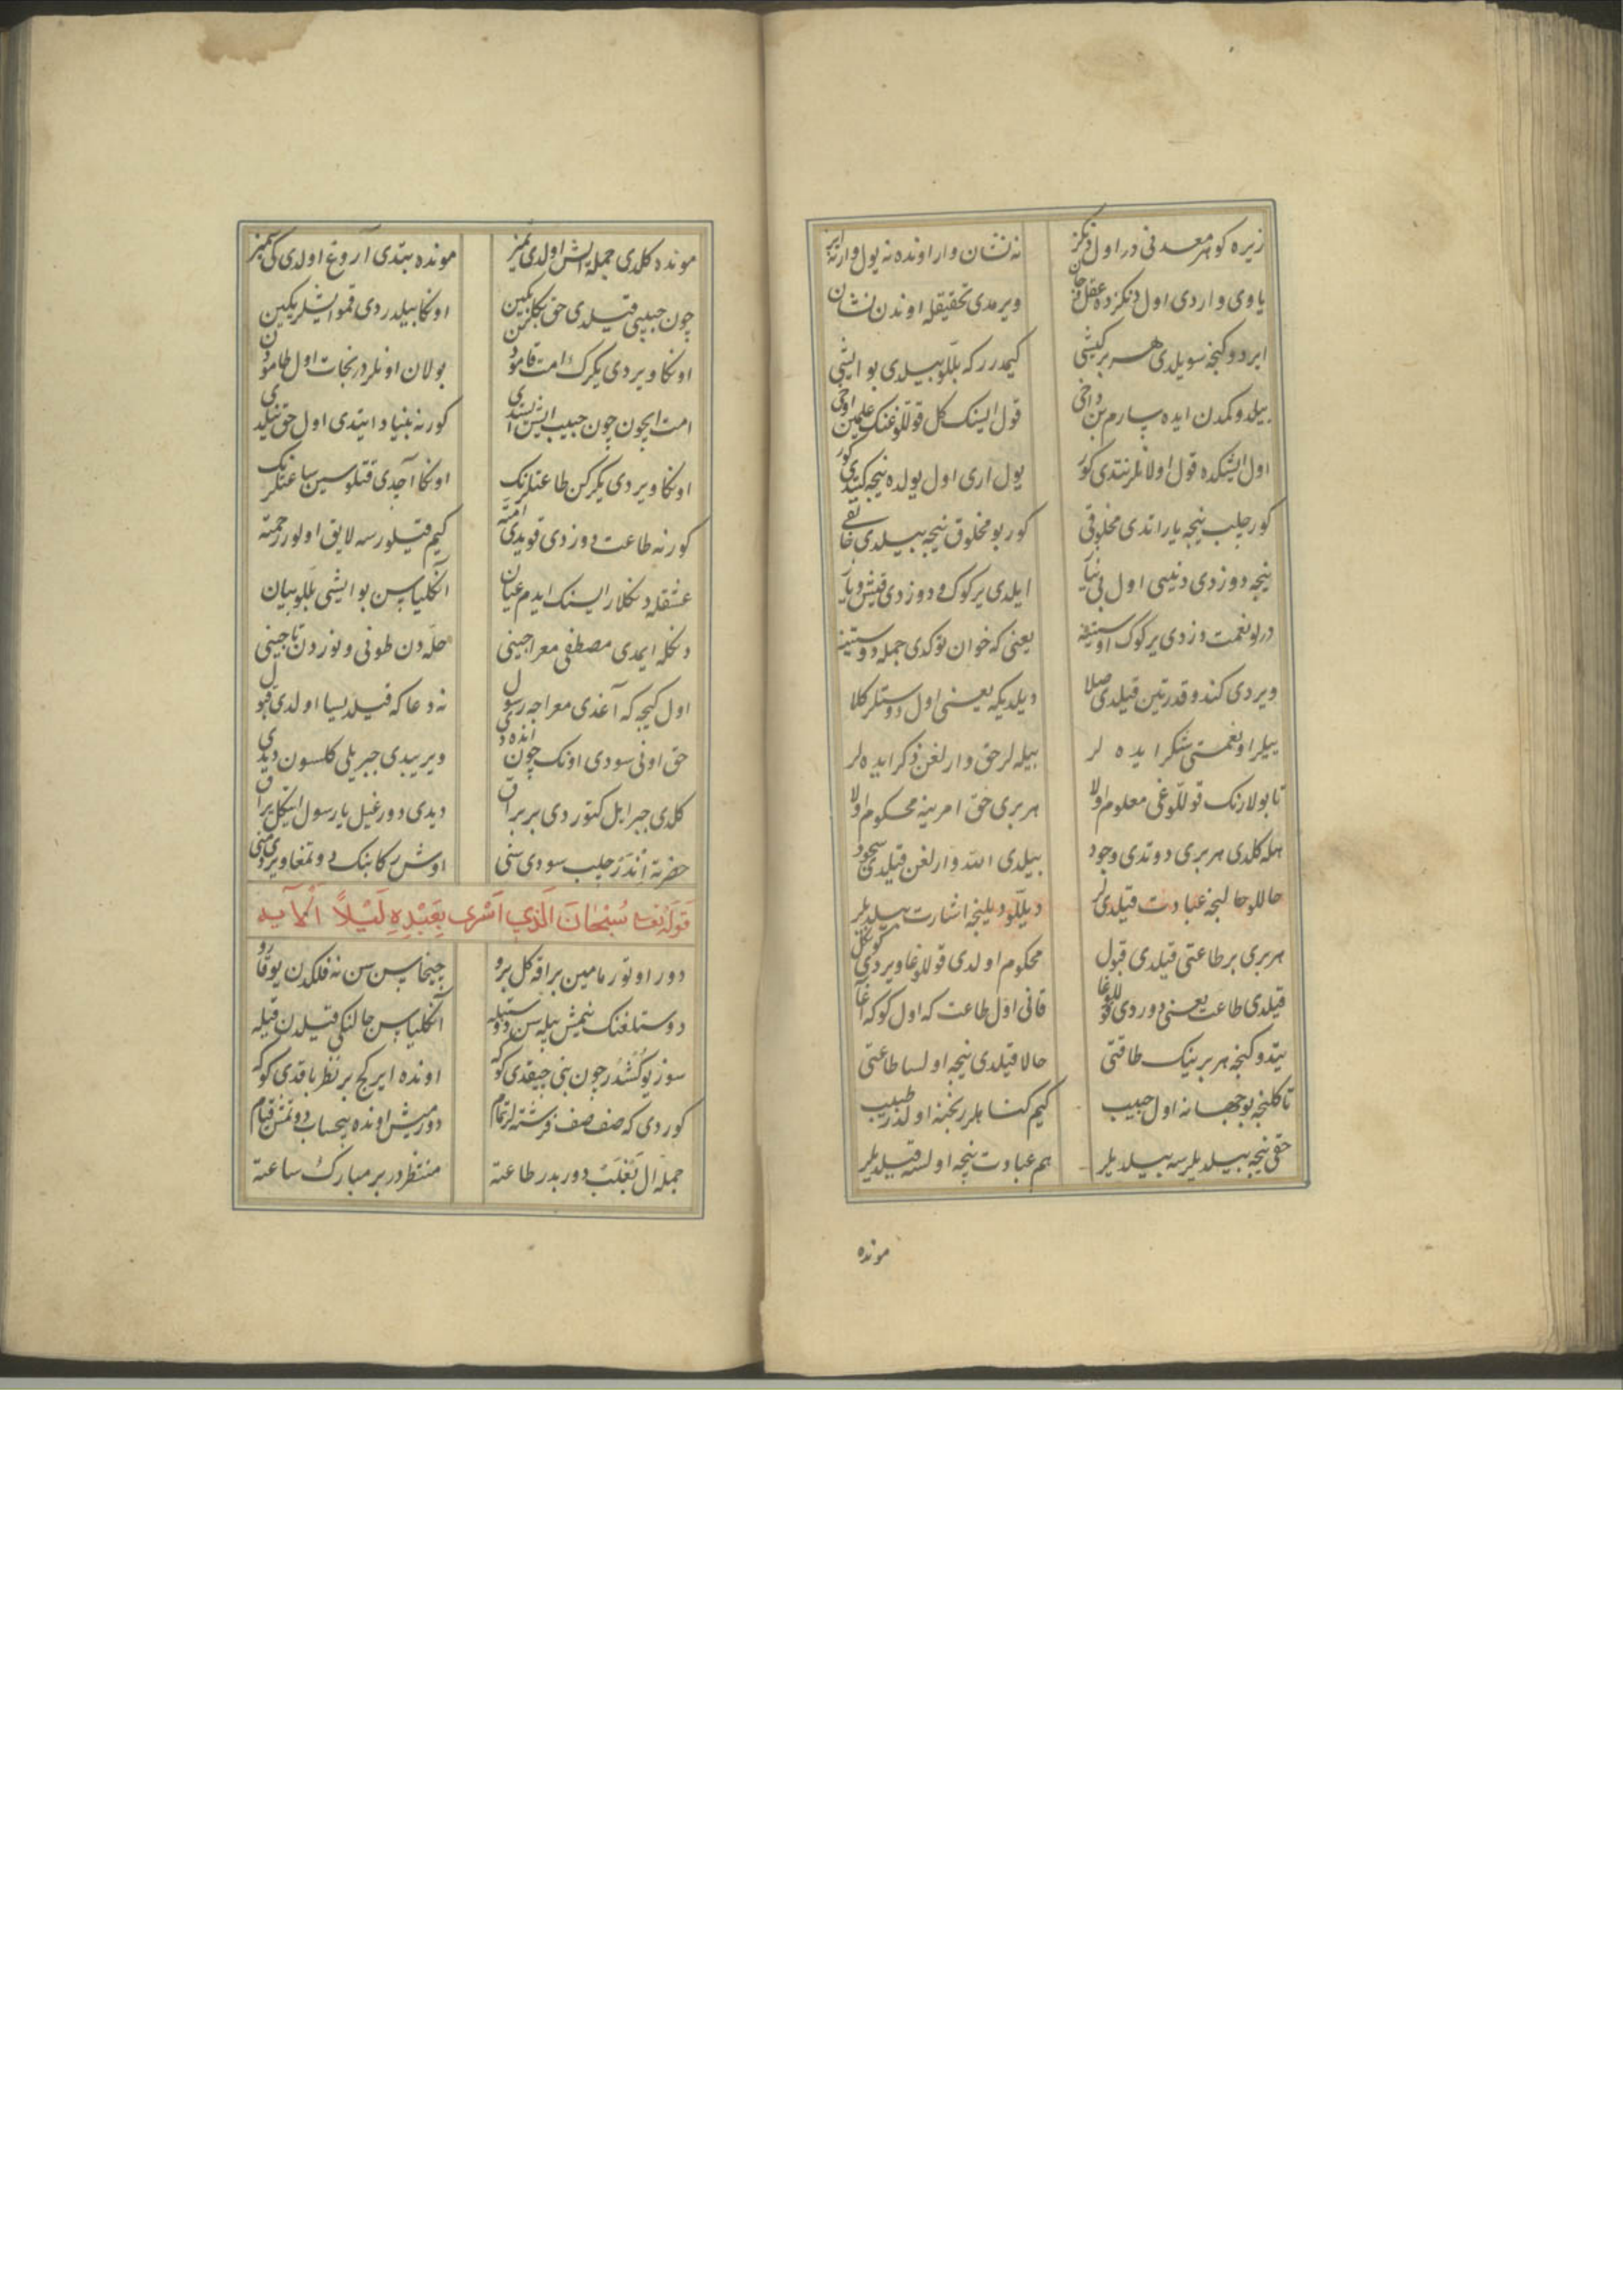 زیره کوهر معدنی در اول دنکز نه نشان وار اونده نه یول وار نه ایز
یاوی واردی اول دنکزده عقل و جان ویرمدی تحقیقله اوندن نشان
ایردوکنجه سویلدی هر بر کیشی کیمدرر که بللو بیلدی بو ایشی
بیلدوکمدن ایده یارم بن داخی قول ایسنک کل قوللوغنک
اول ایشکده قول اولانلر نتدی کور یول اری اول یولده نیجه کتدی کور
کور چلب نیجه یاراتدی مخلوقی کور بو مخلوق نیجه بیلدی خالقی
نیجه دوزدی دنیی اول بی نیاز ایلدی یر کوک و دوزدی قیش و یاز
درلو نعمت دزدی یر کوک اوستینه یعنی که خوان توکدی جمله دوستینه
ویردی کندو قدرتین قیلدی صلا دیلدیکه یعنی اول دوستلر کلا
ییلر او نعمتی شکر ایده لر بیله لر حق وارلغن ذکر ایده لر
تا بولارنک قوللوغی معلوم اولا هر بری حق امرینه محکوم اولا
هله کلدی هر بری دوتدی وجود بیلدی الله وارلغن قیلدی سجود
حاللو حالنجه عبادت قیلدیلر دیللو دیلنجه اشارت بیلدیلر
هر بری بر طاعتی قیلدی قبول محکوم اولدی قوللوغا ویردی کوکل
قیلدی طاعت یعنی دوردی قوللوغا قانی اول طاعت که اول کوکه آغا
یتدوکنجه هر برینک طاقتی حالا قیلدی نیجه اولسا طاعتی
تا کلنجه بو جهانه اول حبیب کیم کناهلر رنجنه اولدر طبیب
حقی نیجه بیلدیلرسه بیلدیلر هم عبادت نیجه اولسه قیلدیلر
مونده
مونده کلدی جمله ایش اولدی تمیز مونده بتدی آروغ اولدی
چون حبیبی قیلدی حق اونکا بیلدردی قمو ایشلر یکین
اونکا ویردی یکرک امت قامودن بولان اونلردر نجات اول طامودن
امت ایچون چون حبیب ایش ایستدی کور نه بنیاد ایتدی اول حق نیلدی
اونکا ویردی یکرکن طاعتلرنک اونکا آچدی قتلوسین ساعتلرنک
کور نه طاعت دوزدی قویدی امته کیم قیلورسه لایق اولور رحمته
عشقله دنکلار ایسنک ایدم عیان آنکلیاسن بو ایشی بللو بیان
دنکله ایمدی مصطفی معراجینی حله دن طونی و نوردن تاجینی
اول کیجه که آغدی معراجه رسول نه دعا که قیلدیسا اولدی قبول
حق اونی سودی اونک چون اندهدی ویریبدی جبریلی کلسون دیدی
کلدی جبرایل کتوردی بر براق دیدی دور غیل یا رسول
حضرته اندر چلب سودی سنی اوش رکابنک دوتمغا ویردی منی
قوله تعالی سُبْحَانَ الَّذِي أَسْرَى بِعَبْدِهِ لَيْلًا الآیه
دور اوتورمامین براقه کل برو چیخاسن سن نه فلکدن یوقارو
دوستلغنک ییمش ییله سن دوستیله آنکلیاسن حالنکی قیلدن قیله
سوز یوکشدر چون بنی چیقدی کوکه اونده ایرکج بر نظر باقدی کوکه
کوردی که صف صف فرشته لر تمام دورمیش اونده بیحساب دوتمش قیام
جمله ال بغلب دوربدر طاعته منتظردر بر مبارک ساعته